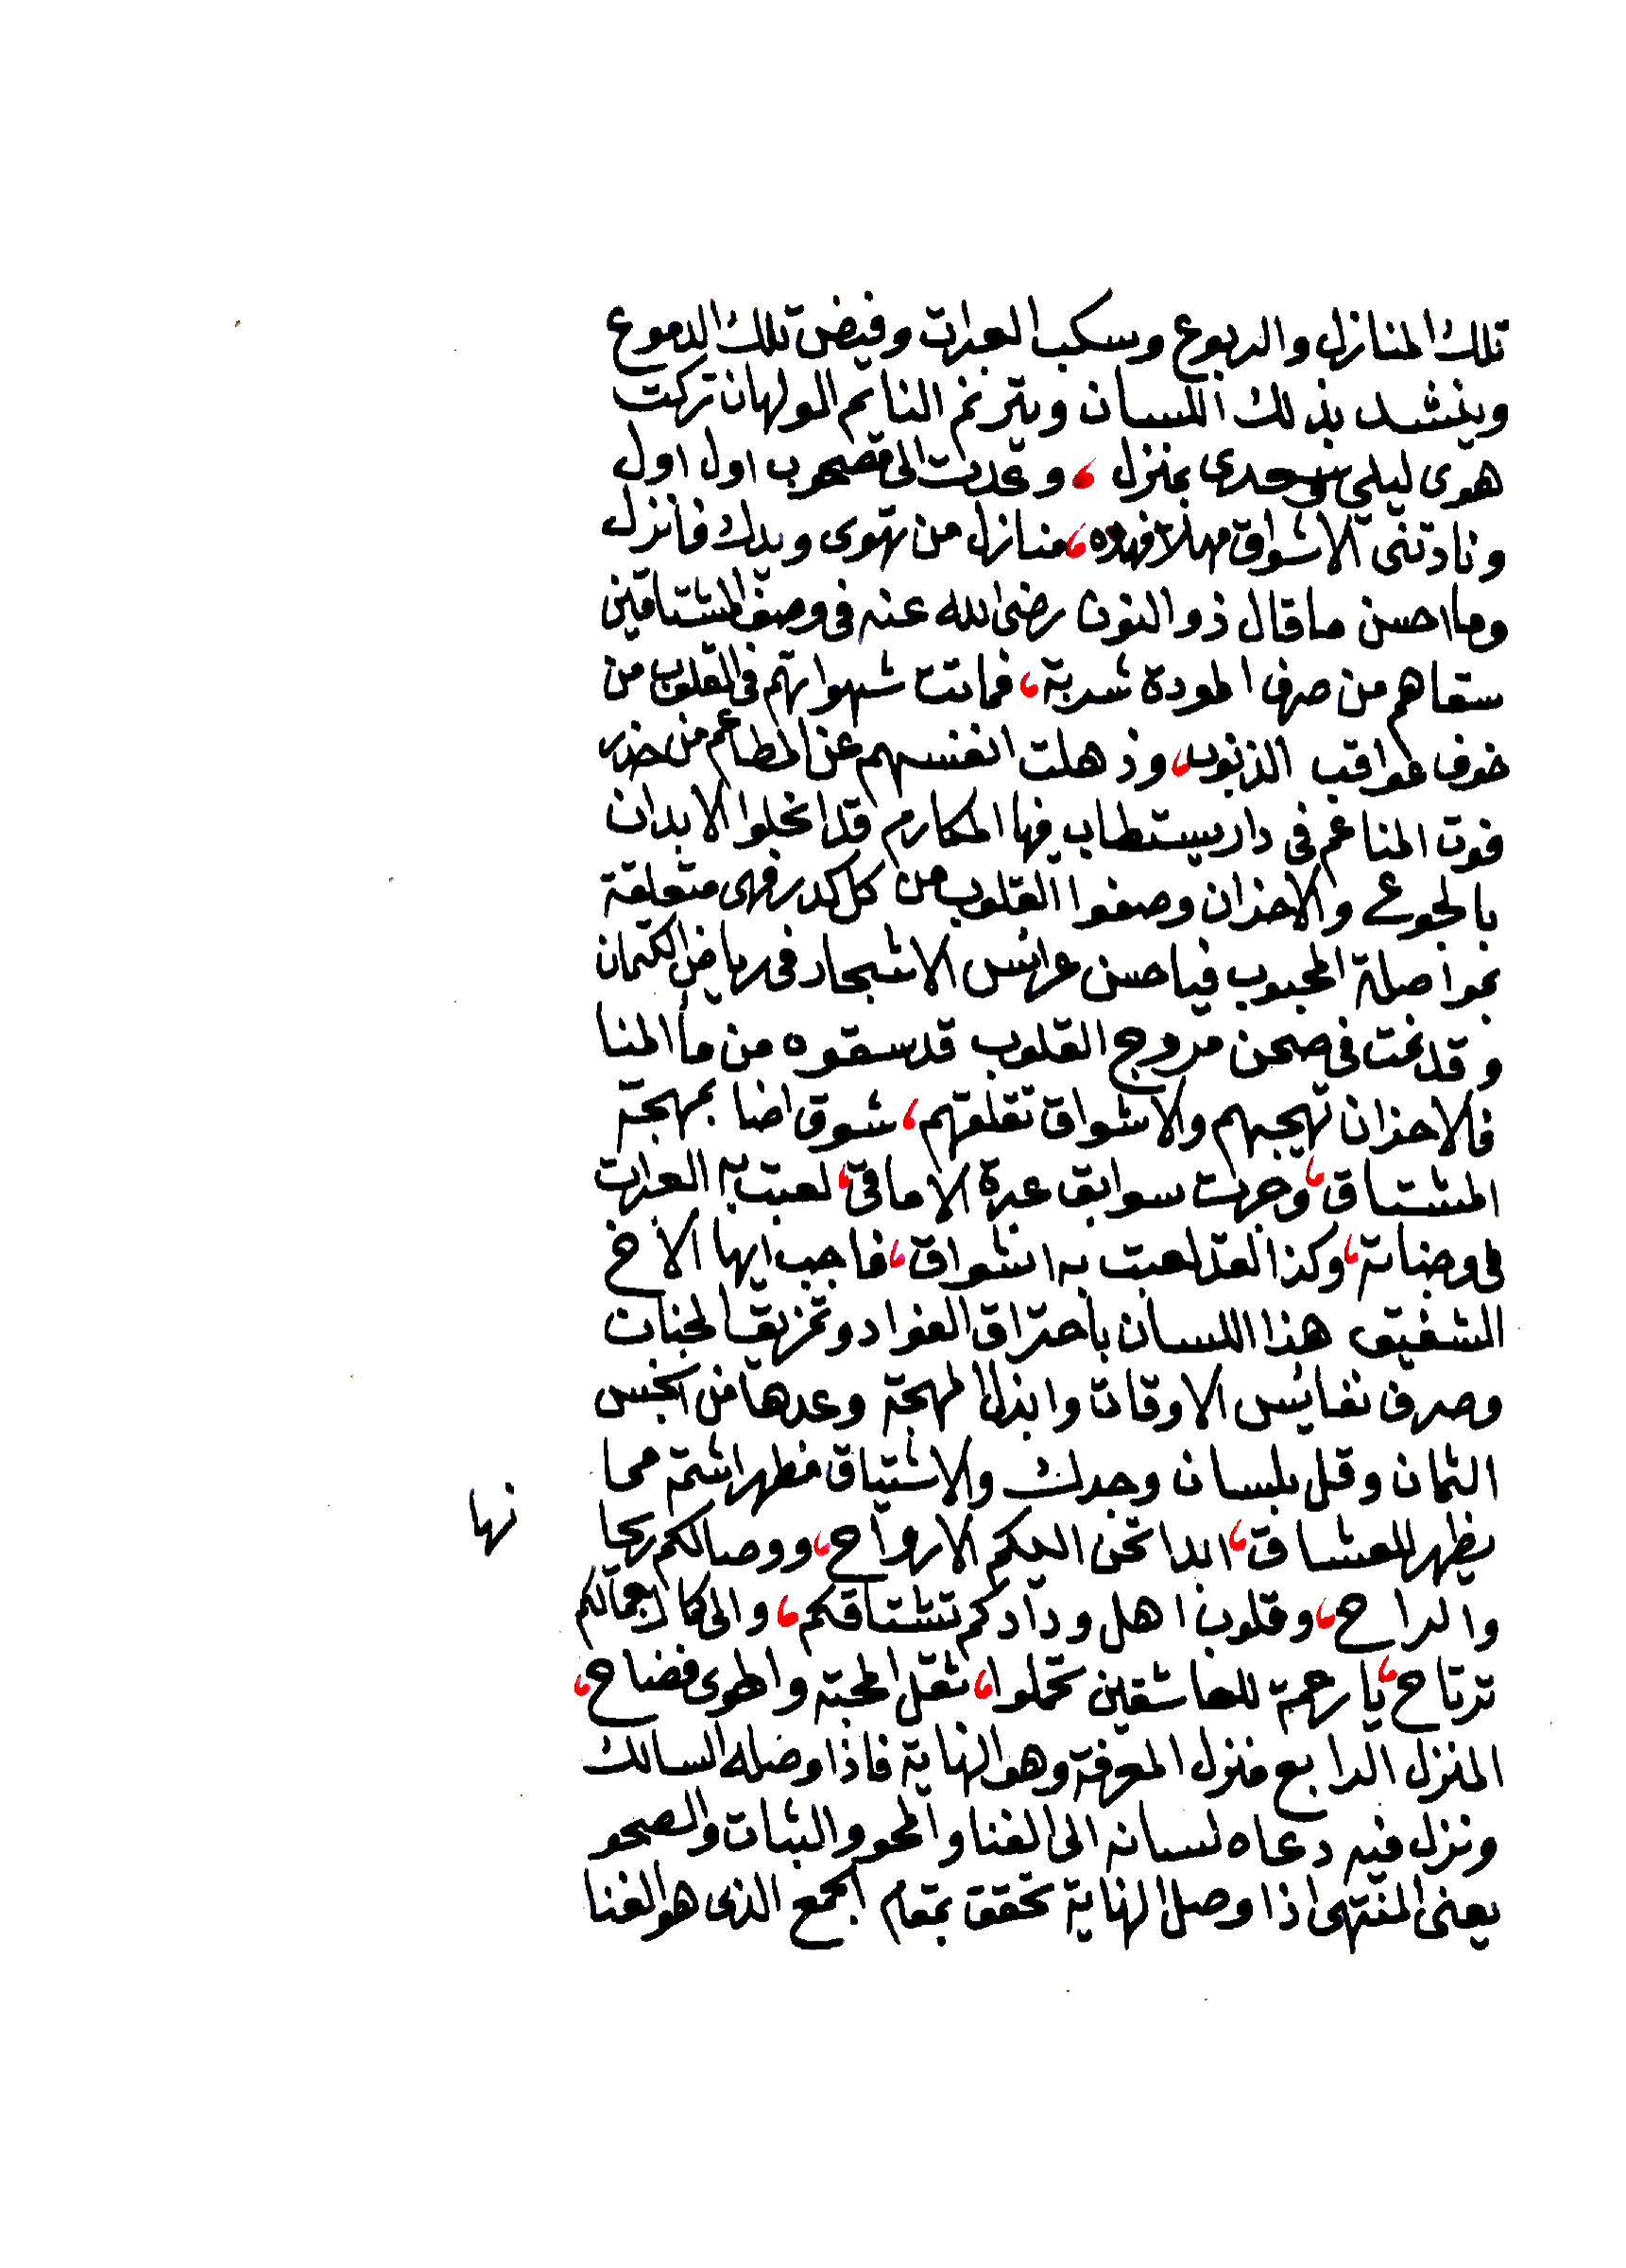 تلك المنازل والربوع وسكب العبرات وفيض تلك الدموع
وينشد بذلك اللسان ويترنم النايم الولهان تركت
هوى ليلي سعدى بمنزل ، وعدت الى مصحوب اول اول
ونادتنى الاشواق مهلا فهذه ، منازل من تهوى ويدك فانزل
وما احسن ما قال ذو النون رضى الله عنه فى وصف المشتاقين
سقاهم من صرف المودة شربة ، فماتت شهواتهم فى القلوب من
خوف عواقب الذنوب ، وذهلت انفسهم عن المطاعم من حذر
فوت المناعم فى دار يستطاب فيها المكارم قد انحلوا الابدان
بالجوع والاحزان وصفوا القلوب من كل كدر فهى متعلقة
بمواصلة المحبوب فيا حسن عرائس الاشجار فى رياض الكتمان
وقد نمت فى صحن مروج القلوب قد سقوه من ماء المنا
فالاحزان تهيجهم والاشواق تقلقهم ، شوق اضا بمهجة
المشتاق ، وجرت سوابق عبرة الاماقى ، لعبت به العبرات
فى وجناته ، وكذا لقد لعبت به اشواق ، فاجب ايها الاخ
الشفيق هذا اللسان باحتراق الفواد وتمزيق الجنان
وصرف نفايس الاوقات وابذل المهجة وعدها من ابخس
اثمان وقل بلسان وجدك والاشتياق مظهرا شمة مما
يظهر للعشاق ، ابدا تحن اليكم الارواح ، ووصالكم ريحا
نها
والراح ، وقلوب اهل ودادكم تشتاقكم ، والى كمال جمالكم
ترتاح ، يا رحمة للعاشقين تحملوا ، ثقل المحبة والهوى فضاح ،
المنزل الرابع منزل المعرفة وهو النهاية فاذا وصله السالك
ونزل فيه دعاه لسانه الى الفنا والمحو والثبات والصحو
يعنى المنتهى اذا وصل النهاية تحقق بمقام الجمع الذى هو الفنا